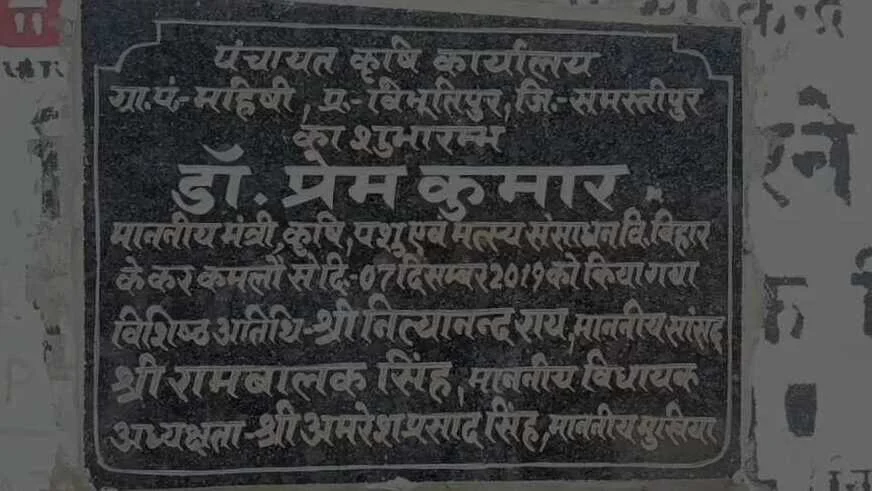 पंचायत कृषि कार्यालय
ग्रा.पं.-महिषी, प्र.-विभूतिपुर, जि.-समस्तीपुर
का शुभारम्भ
डॉ. प्रेम कुमार
माननीय मंत्री, कृषि, पशु एवं मत्स्य संसाधन वि. बिहार
के कर कमलों से दि.-07 दिसम्बर 2019 को किया गया
विशिष्ठ अतिथि-श्री नित्यानन्द राय, माननीय सांसद
श्री रामबालक सिंह, माननीय विधायक
अध्यक्षता-श्री अमरेश प्रसाद सिंह, माननीय मुखिया